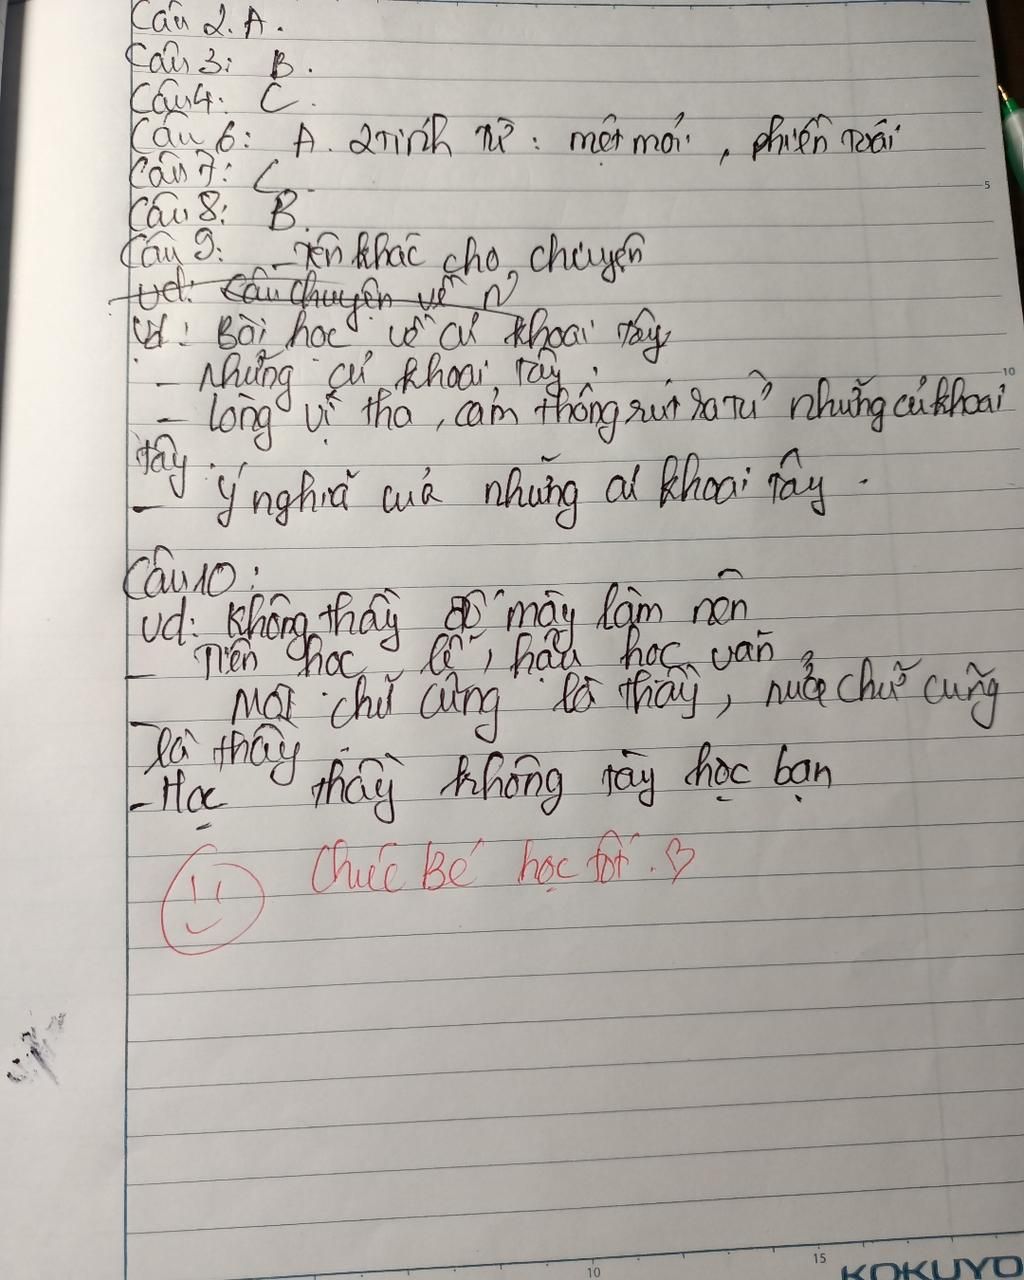 Câu 2. A.
Câu 3: B.
Câu 4. C.
Câu 6: A. 2 Tính Từ: mệt mỏi, phiền toái
Câu 7: C.
Câu 8: B.
Câu 9: - Tên khác cho chuyện
vd: Câu chuyện về
Vd: Bài học về củ khoai tây
- Những củ khoai tây.
- lòng vị tha, cảm thông rút ra từ những củ khoai
tây.
- Ý nghĩa của những củ khoai tây.
Câu 10:
Vd: Không thầy đố mày làm nên
- Tiên học lễ, hậu học văn
- Một chữ cũng là thầy, nửa chữ cũng
là thầy
- Học thầy không tày học bạn
Chúc Bé học tốt.
5
10
10
15
KOKUYO